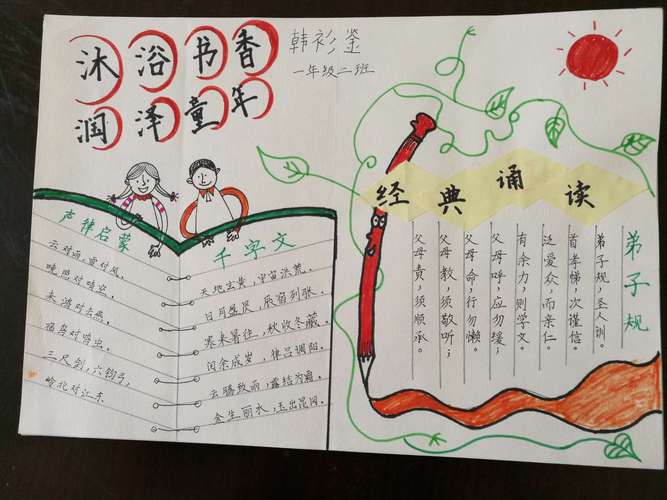 沐浴书香
润泽童年
韩衫鉴
一年级二班
声律启蒙
云对雨，雪对风，
晚照对晴空。
来鸿对去燕，
宿鸟对鸣虫。
三尺剑，六钧弓，
岭北对江东
千字文
天地玄黄，宇宙洪荒。
日月盈昃，辰宿列张。
寒来暑往，秋收冬藏。
闰余成岁，律吕调阳。
云腾致雨，露结为霜。
金生丽水，玉出昆冈。
经典诵读
弟子规
弟子规，圣人训。
首孝悌，次谨信。
泛爱众，而亲仁。
有余力，则学文。
父母呼，应勿缓；
父母命，行勿懒。
父母教，须敬听；
父母责，须顺承。